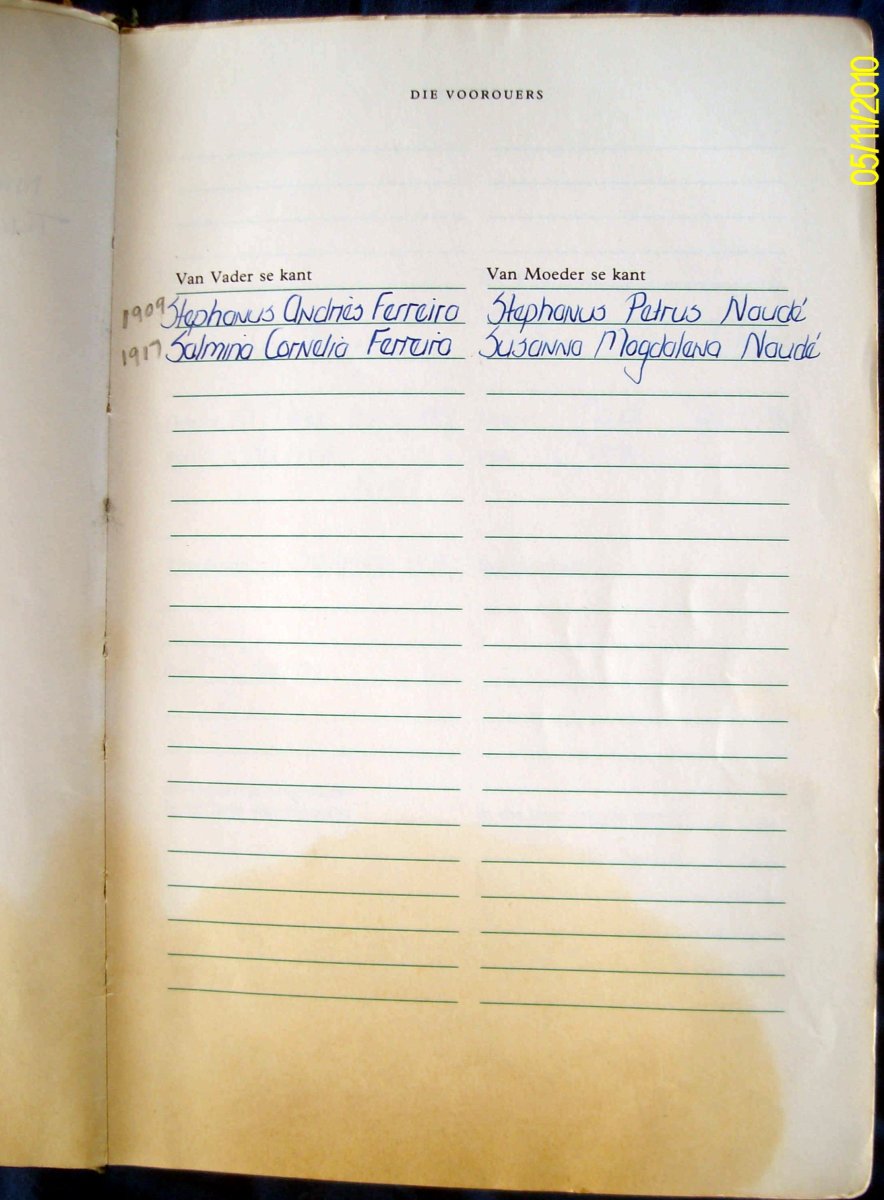 05/11/2010
DIE VOOROUERS
Van Vader se kant Van Moeder se kant
1909 Stephanus Andries Ferreira Stephanus Petrus Naudé
1917 Salmina Cornelia Ferreira Susanna Magdalena Naudé